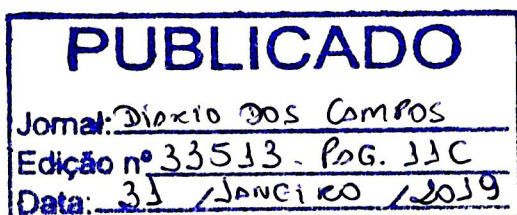 PUBLICADO
Jornal: DIARIO DOS CAMPOS
Edição nº 33513. PAG. 11C
Data: 31 / JANEIRO / 2019